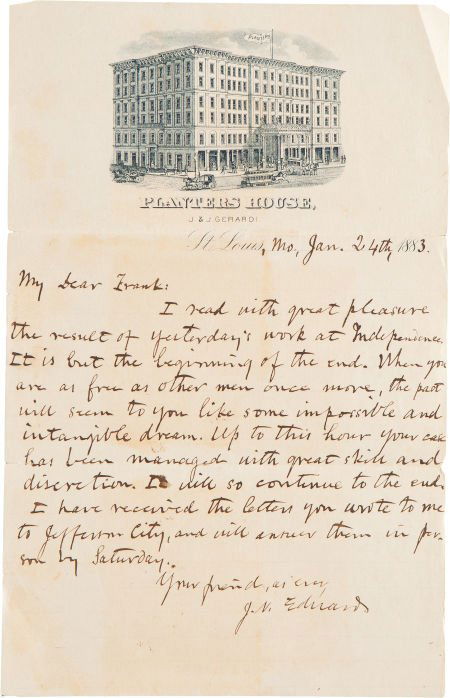 PLANTERS
PLANTERS HOUSE,
J. & J. GERARDI.
St Louis, Mo, Jan. 24th, 1883.
My Dear Frank:
I read with great pleasure
the result of yesterday's work at Independence.
It is but the beginning of the end. When you
are as free as other men once more, the past
will seem to you like some impossible and
intangible dream. Up to this hour your case
has been managed with great skill and
discretion. It will so continue to the end.
I have received the letters you wrote to me
to Jefferson City, and will answer them in per-
son by Saturday.
Your friend, as ever
J. N. Edwards